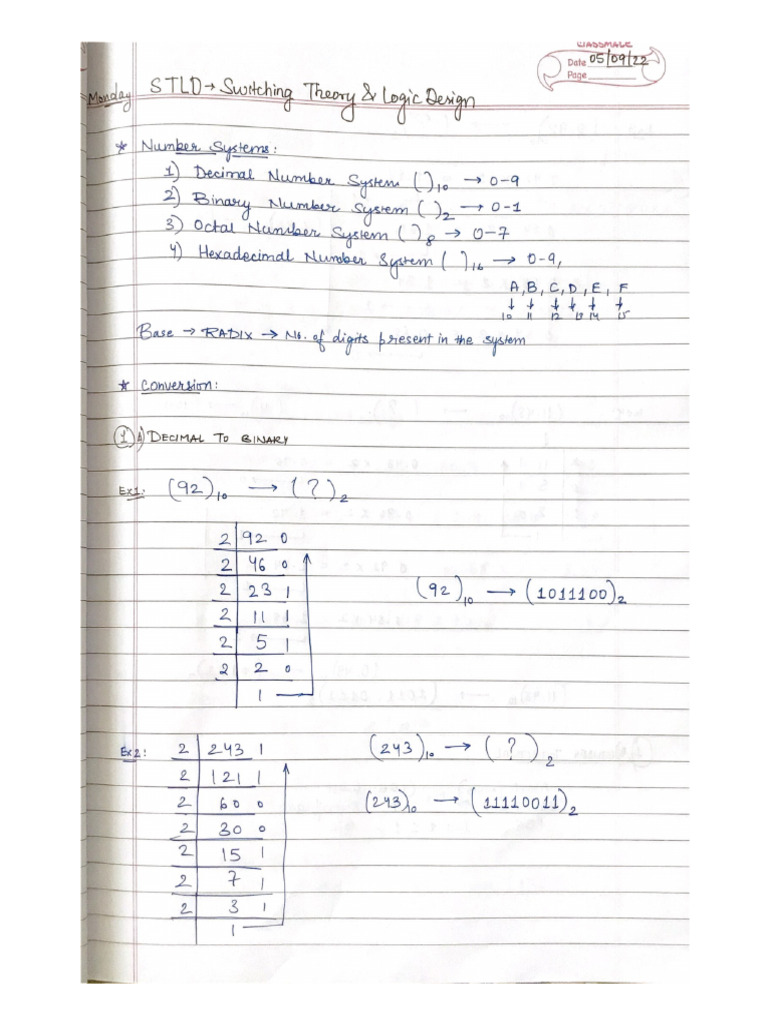 CLASSMATE
Date 05/09/22
Page
Monday STLD → Switching Theory & Logic Design
* Number Systems:
1) Decimal Number System ( )10 → 0-9
2) Binary Number System ( )2 → 0-1
3) Octal Number System ( )8 → 0-7
4) Hexadecimal Number System ( )16 → 0-9,
A, B, C, D, E, F
↓ ↓ ↓ ↓ ↓ ↓
10 11 12 13 14 15
Base → RADIX → No. of digits present in the system
* Conversion:
① A) DECIMAL TO BINARY
Ex1: (92)10 → (?)2
2 92 0
2 46 0
2 23 1 (92)10 → (1011100)2
2 11 1
2 5 1
2 2 0
1
Ex2: 2 243 1 (243)10 → (?)2
2 121 1
2 60 0 (243)10 → (11110011)2
2 30 0
2 15 1
2 7 1
2 3 1
1